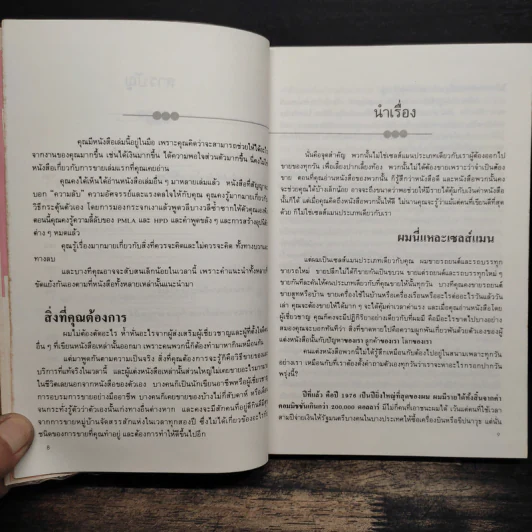 คุณมีหนังสือเล่มนี้อยู่ในมือ เพราะคุณคิดว่าจะสามารถช่วยให้ได้อะไร
จากงานของคุณมากขึ้น เช่นได้เงินมากขึ้น ได้ความพอใจส่วนตัวมากขึ้น นี่คงไม่ใช่
หนังสือเกี่ยวกับการขายเล่มแรกที่คุณเคยอ่าน
คุณคงได้เห็นได้อ่านหนังสือเล่มอื่น ๆ มาหลายเล่มแล้ว หนังสือที่สัญญาจะ
บอก "ความลับ" ความอัศจรรย์และแรงดลใจให้กับคุณ
วิธีกระตุ้นตัวเอง โดยการมองกระจกแล้วพูดบางวลีซ้ำซากให้ตัวคุณเอง
ตอนนี้คุณคงรู้ความลี้ลับของ PMLA และ HPD และคำพูดขลัง ๆ และการสร้าง
ต่าง ๆ หมดแล้ว
คุณรู้เรื่องมากมายเกี่ยวกับสิ่งที่ควรจะคิดและไม่ควรจะคิด ทั้งทางบวก
ทางลบ
และบางทีคุณอาจจะสับสนเล็กน้อยในเวลานี้ เพราะคำแนะนำทั้งหลาย
ขัดแย้งกันเองตามที่หนังสือทั้งหลายเหล่านั้นแนะนำมา
สิ่งที่คุณต้องการ
ผมไม่ต้องตัดอะไร ห้ำหั่นอะไรจากผู้ส่งเสริมผู้เชี่ยวชาญและผู้ที่ตั้ง
อื่น ๆ ที่เขียนหนังสือเหล่านั้นออกมา เพราะคนพวกนี้ก็ต้องทำมาหากินเหมือนกัน
แต่มาพูดกันตามความเป็นจริง สิ่งที่คุณต้องการจะรู้ก็คือวิธีขายของและ
บริการที่แท้จริงในเวลานี้ และผู้แต่งหนังสือเหล่านั้นส่วนใหญ่ไม่เคยขายอะไร
ในชีวิตเลยนอกจากหนังสือของตัวเอง บางคนก็เป็นนักเขียนอาชีพหรือผู้เชี่ยวชาญ
การอบรมการขายอย่างมืออาชีพ บางคนก็เคยขายของบ้างไม่กี่สัปดาห์ หรือ
จนกระทั่งรู้สึกว่าตัวเองนั้นเก่งทางอื่นต่างหาก และคงจะมีสักคนที่อยู่ดีกินดี
จากการขายหมู่บ้านจัดสรรสักแห่งในเวลาทุกสองปี ซึ่งไม่ได้เกี่ยวข้องอะไรกับ
ชนิดของการขายที่คุณทำอยู่ และต้องการทำให้ดีขึ้นไปอีก
8
นำเรื่อง
นั่นคือจุดสำคัญ พวกนั้นไม่ใช่เซลส์แมนประเภทเดียวกับเราผู้ต้องออกไป
ขายของทุกวัน เพื่อเลี้ยงปากเลี้ยงท้อง พวกนั้นไม่ได้ต้องขายเพราะว่าจำเป็นต้อง
ขาย ตอนที่คุณอ่านหนังสือของพวกนั้น ก็รู้สึกดีว่าหนังสือและพวกนั้นคง
จะช่วยคุณได้บ้างเล็กน้อย อาจจะถึงขนาดว่าพอช่วยให้มีรายได้คุ้มกับเงินค่าหนังสือ
นั้นก็ได้ แต่เมื่อคุณคิดถึงหนังสือพวกนั้นให้ดี ไม่นานคุณจะรู้ว่าแม้แต่คนที่เขียนดีที่สุด
ด้วย ก็ไม่ใช่เซลส์แมนประเภทเดียวกับเรา
ผมนี่แหละเซลส์แมน
แต่ผมเป็นเซลส์แมนประเภทเดียวกับคุณ ผมขายรถยนต์และรถบรรทุก
ขายรถใหม่ ขายปลีกไม่ได้ขายกันเป็นขบวน ขายรถยนต์และรถบรรทุกใหม่ ๆ
ขายกันทีละคันให้คนประเภทเดียวกับที่คุณขายให้นั้นทุกวัน บางทีคุณคงขายรถยนต์
ขายสูทหรือบ้าน ขายเครื่องใช้ในบ้านหรือเครื่องเรือนหรืออะไรต่ออะไรวันแล้ววัน
เล่า คุณจะต้องขายให้ได้มาก ๆ จะได้คุ้มค่าเวลาค่าแรง และเมื่อคุณอ่านหนังสือโดย
ผู้เชี่ยวชาญ คุณก็คงจะมีปฏิกิริยาอย่างเดียวกับที่ผมมี คือมีอะไรขาดไปบางอย่าง
สมองคุณจะบอกทันทีว่า สิ่งที่ขาดหายไปคือความผูกพันเกี่ยวพันด้วยตัวเองของผู้
แต่งหนังสือนั้นกับปัญหาของเรา ลูกค้าของเรา โลกของเรา
คนแต่งหนังสือพวกนี้ไม่ได้รู้สึกเหมือนกับต้องไปอยู่ในสนามเพลาะทุกวัน
อย่างเรา เหมือนกับที่เราต้องตั้งคำถามถามตัวเองทุกวันว่าเราจะหาอะไรกรอกปากวัน
พรุ่งนี้?
ปีที่แล้ว คือปี 1976 เป็นปีอันยิ่งใหญ่ที่สุดของผม ผมมีรายได้ทั้งสิ้นจากค่า
คอมมิชชั่นเกินกว่า 200,000 ดอลลาร์ มีไม่กี่คนที่เอาชนะผมได้ เว้นแต่คนที่ใช้เวลา
สามปีจ่ายเงินให้รัฐมนตรีบางคนในบางประเทศให้ซื้อเครื่องบินหรือขีปนาวุธ แต่นั่น
9